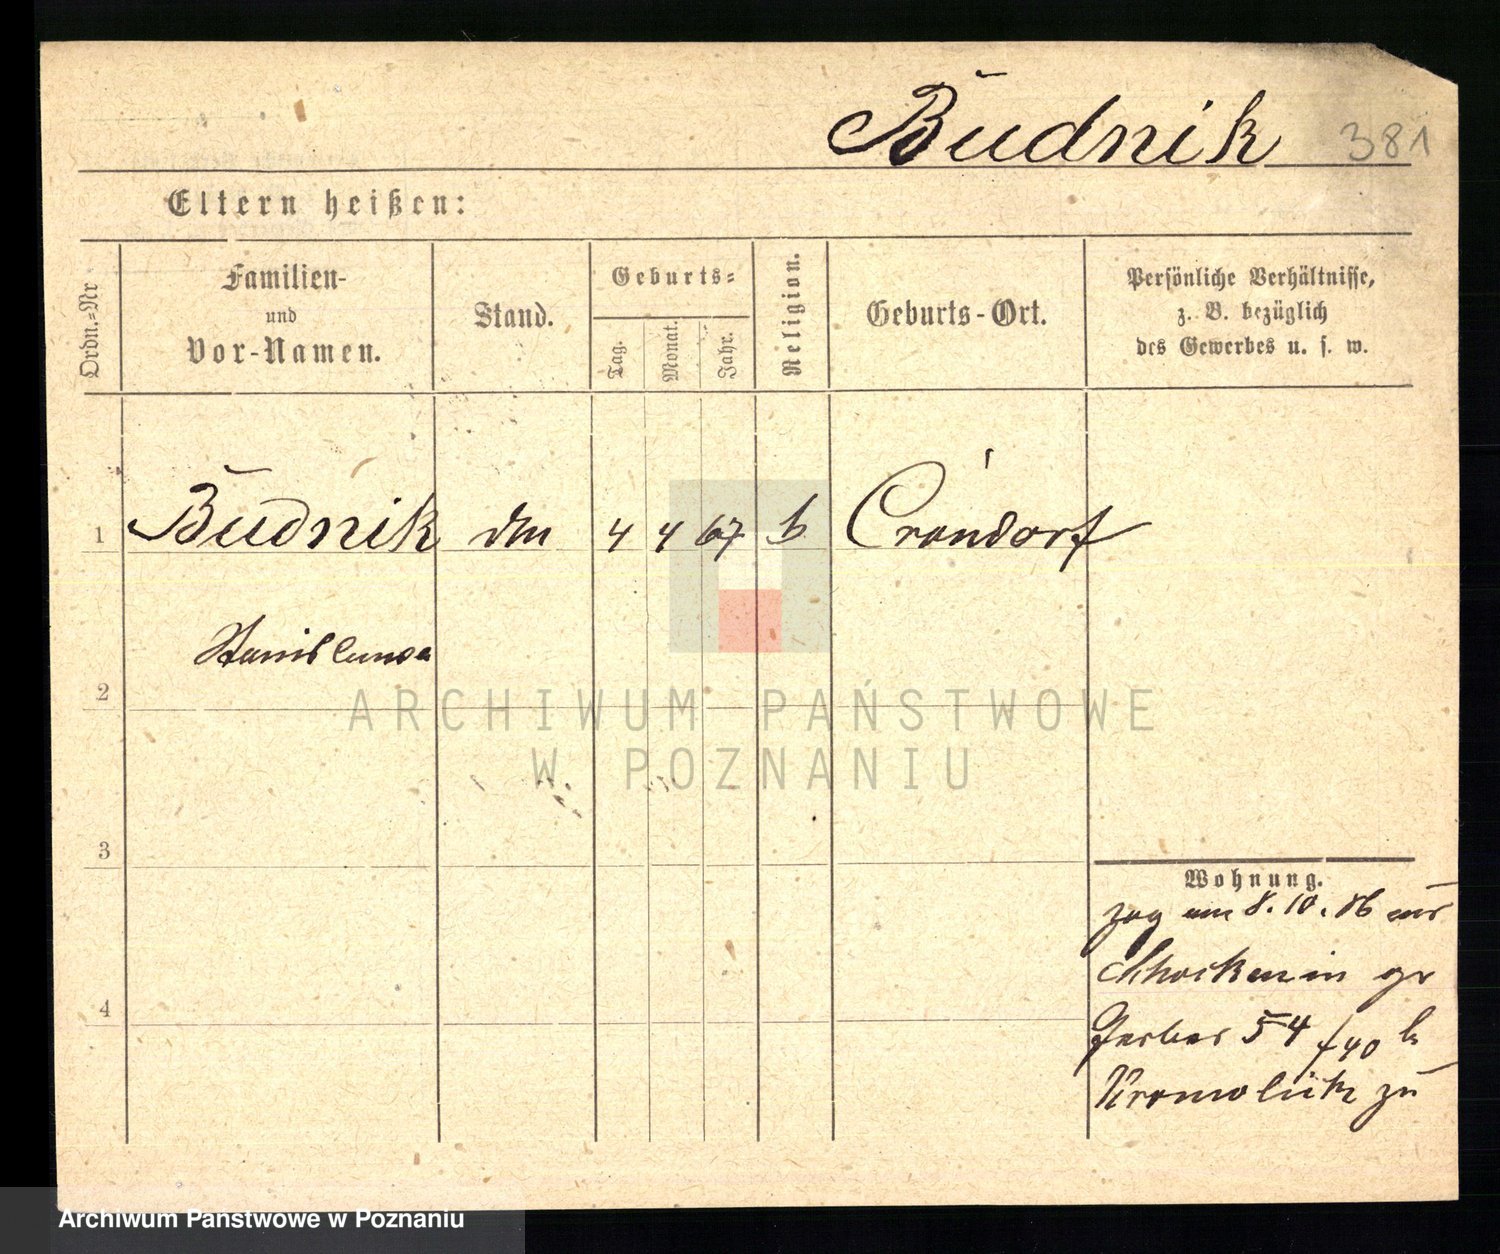 Budnik 381
Eltern heißen:
Ordn.-Nr
Familien-
und
Vor-Namen.
Stand.
Geburts-
Tag.
Monat.
Jahr.
Religion.
Geburts-Ort.
Persönliche Verhältnisse,
z. B. bezüglich
des Gewerbes u. s. w.
1 Budnik 4 4 67 Crandorf
Stanislawa
2
ARCHIWUM PAŃSTWOWE
W POZNANIU
3
Wohnung.
zog am 8. 10. 86 aus
Schocken in gr
Gerber 54 / 40 b
Kromolitz zu
4
Archiwum Państwowe w Poznaniu